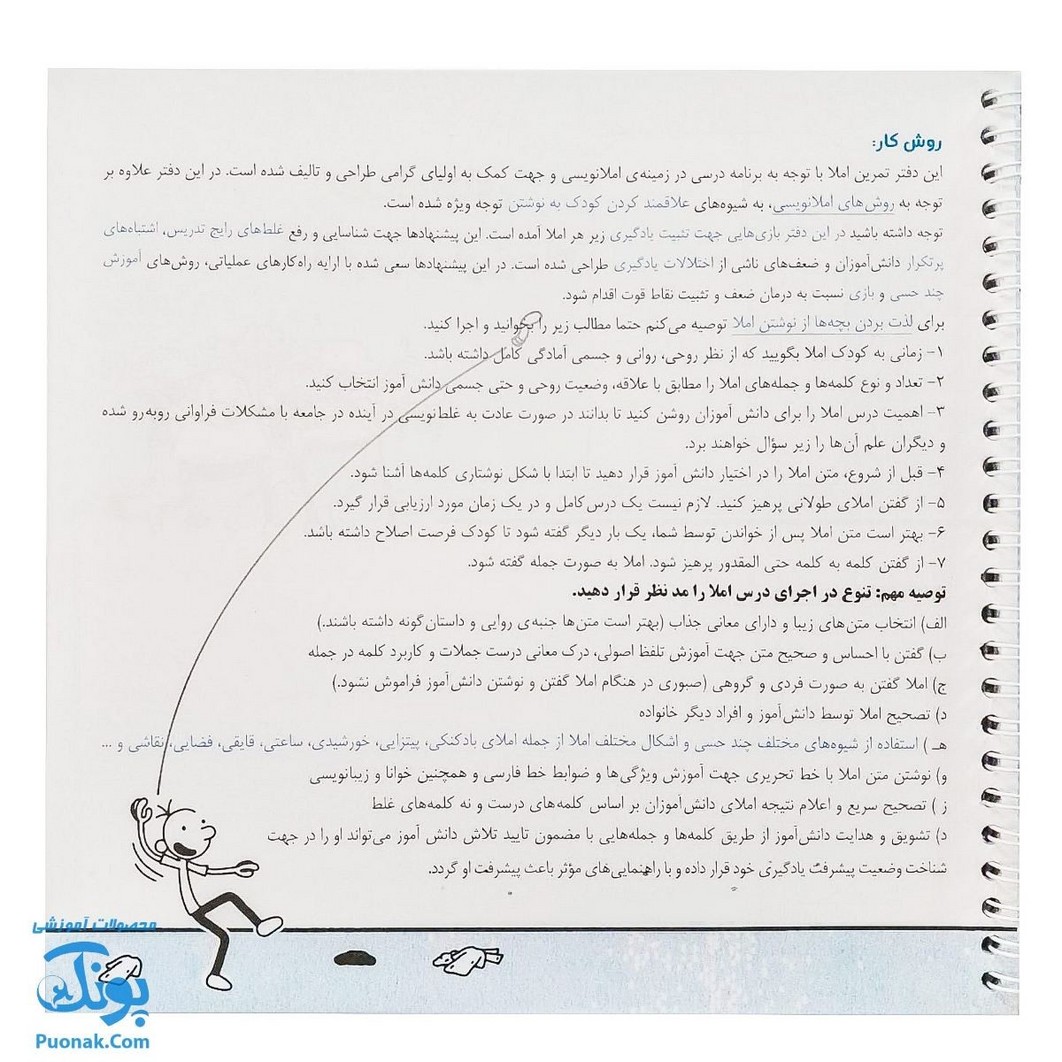 روش کار:
این دفتر تمرین املا با توجه به برنامه درسی در زمینه‌ی املانویسی و جهت کمک به اولیای گرامی طراحی و تالیف شده است. در این دفتر علاوه بر
توجه به روش‌های املانویسی، به شیوه‌های علاقمند کردن کودک به نوشتن توجه ویژه شده است.
توجه داشته باشید در این دفتر بازی‌هایی جهت تثبیت یادگیری زیر هر املا آمده است. این پیشنهادها جهت شناسایی و رفع غلط‌های رایج تدریس، اشتباه‌های
پرتکرار دانش‌آموزان و ضعف‌های ناشی از اختلالات یادگیری طراحی شده است. در این پیشنهادها سعی شده با ارایه راه‌کارهای عملیاتی، روش‌های آموزش
چند حسی و بازی نسبت به درمان ضعف و تثبیت نقاط قوت اقدام شود.
برای لذت بردن بچه‌ها از نوشتن املا توصیه می‌کنم حتما مطالب زیر را بخوانید و اجرا کنید.
۱- زمانی به کودک املا بگویید که از نظر روحی، روانی و جسمی آمادگی کامل داشته باشد.
۲- تعداد و نوع کلمه‌ها و جمله‌های املا را مطابق با علاقه، وضعیت روحی و حتی جسمی دانش آموز انتخاب کنید.
۳- اهمیت درس املا را برای دانش آموزان روشن کنید تا بدانند در صورت عادت به غلط‌نویسی در آینده در جامعه با مشکلات فراوانی روبه‌رو شده
و دیگران علم آن‌ها را زیر سؤال خواهند برد.
۴- قبل از شروع، متن املا را در اختیار دانش آموز قرار دهید تا ابتدا با شکل نوشتاری کلمه‌ها آشنا شود.
۵- از گفتن املای طولانی پرهیز کنید. لازم نیست یک درس کامل و در یک زمان مورد ارزیابی قرار گیرد.
۶- بهتر است متن املا پس از خواندن توسط شما، یک بار دیگر گفته شود تا کودک فرصت اصلاح داشته باشد.
۷- از گفتن کلمه به کلمه حتی المقدور پرهیز شود. املا به صورت جمله گفته شود.
توصیه مهم: تنوع در اجرای درس املا را مد نظر قرار دهید.
الف) انتخاب متن‌های زیبا و دارای معانی جذاب (بهتر است متن‌ها جنبه‌ی روایی و داستان‌گونه داشته باشند.)
ب) گفتن با احساس و صحیح متن جهت آموزش تلفظ اصولی، درک معانی درست جملات و کاربرد کلمه در جمله
ج) املا گفتن به صورت فردی و گروهی (صبوری در هنگام املا گفتن و نوشتن دانش‌آموز فراموش نشود.)
د) تصحیح املا توسط دانش‌آموز و افراد دیگر خانواده
هـ ) استفاده از شیوه‌های مختلف چند حسی و اشکال مختلف املا از جمله املای بادکنکی، پیتزایی، خورشیدی، ساعتی، قایقی، فضایی، نقاشی و ...
و) نوشتن متن املا با خط تحریری جهت آموزش ویژگی‌ها و ضوابط خط فارسی و همچنین خوانا و زیبانویسی
ز ) تصحیح سریع و اعلام نتیجه املای دانش‌آموزان بر اساس کلمه‌های درست و نه کلمه‌های غلط
د) تشویق و هدایت دانش‌آموز از طریق کلمه‌ها و جمله‌هایی با مضمون تایید تلاش دانش آموز می‌تواند او را در جهت
شناخت وضعیت پیشرفت یادگیری خود قرار داده و با راهنمایی‌های مؤثر باعث پیشرفت او گردد.
محصولات آموزشی
پونک
Puonak.Com